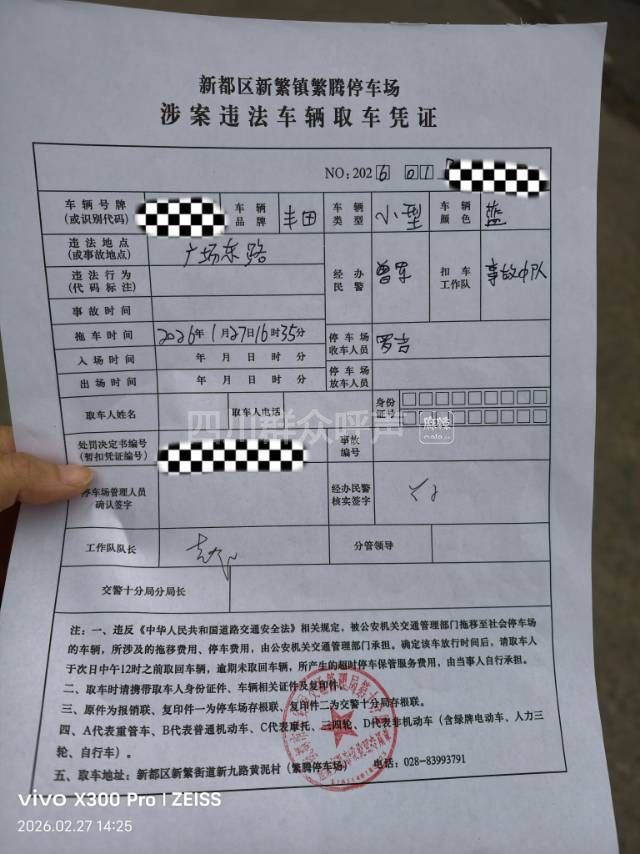 新都区新繁镇繁腾停车场
涉案违法车辆取车凭证
NO: 202 6 01
车辆号牌
(或识别代码)
车辆
品牌
丰田
车辆
类型
小型
车辆
颜色
蓝
违法地点
(或事故地点)
广场东路
经办
民警
曾军
扣车
工作队
事故中队
违法行为
(代码标注)
事故时间
拖车时间
2026年1月27日16时35分
停车场
收车人员
罗吉
入场时间
年 月 日 时 分
出场时间
年 月 日 时 分
停车场
放车人员
取车人姓名
取车人电话
身份
证号
处罚决定书编号
(暂扣凭证编号)
事故
编号
停车场管理人员
确认签字
经办民警
核实签字
工作队队长
分管领导
交警十分局分局长
注:一、违反《中华人民共和国道路交通安全法》相关规定,被公安机关交通管理部门拖移至社会停车场
的车辆,所涉及的拖移费用、停车费用,由公安机关交通管理部门承担。确定该车放行时间后,请取车人
于次日中午12时之前取回车辆,逾期未取回车辆,所产生的超时停车保管服务费用,由当事人自行承担。
二、取车时请携带取车人身份证件、车辆相关证件及复印件。
三、原件为报销联、复印件一为停车场存根联、复印件二为交警十分局存根联。
四、A代表重管车、B代表普通机动车、C代表摩托、三四轮、D代表非机动车(含绿牌电动车、人力三
轮、自行车)。
五、取车地址:新都区新繁街道新九路黄泥村(繁腾停车场) 电话:028-83993791
四川群众呼声
麻辣
mala.cn
vivo X300 Pro | ZEISS
2026.02.27 14:25